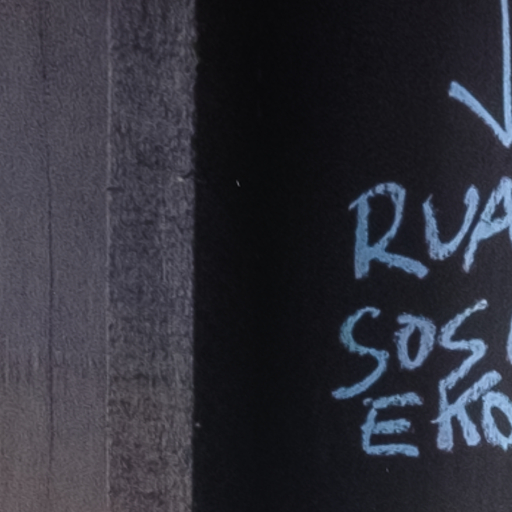 RUA
SOS
EKO